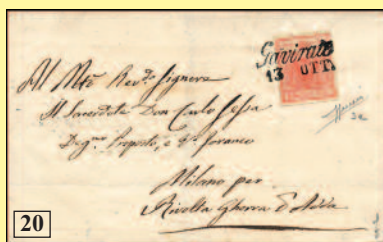 Gavirate
13 OTT.
Al Mto Revdo Signore
Il Sacerdote Don Carlo Sessa
Degmo Proposto, e Vo foraneo
Milano per
Rivolta Gherra d'Adda
20